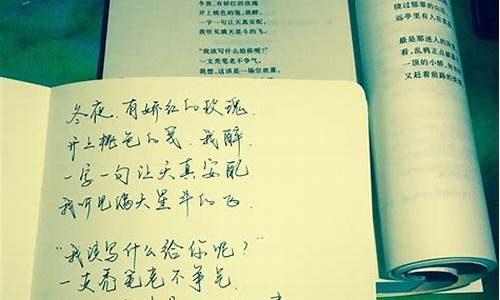 冬夜,有娇红的玫瑰
开上桃色的笺,我醉,
一字一句让天真安配
我听见满天星斗的飞
"我该写什么给你呢?"
一支秃笔老不争气,
冬夜,有娇红的玫瑰
开上桃色的笺,我醉,
一字一句让天真安配,
我听见满天星斗的飞。
"我该写什么给你呢?"
一支秃笔老不争气,
我想,这该是一场空欢喜,
绕过郁翠的山
远亭里有人在
最是那迷人的
看,乱鸦正点
一顶的小轿,
又赶着前路的